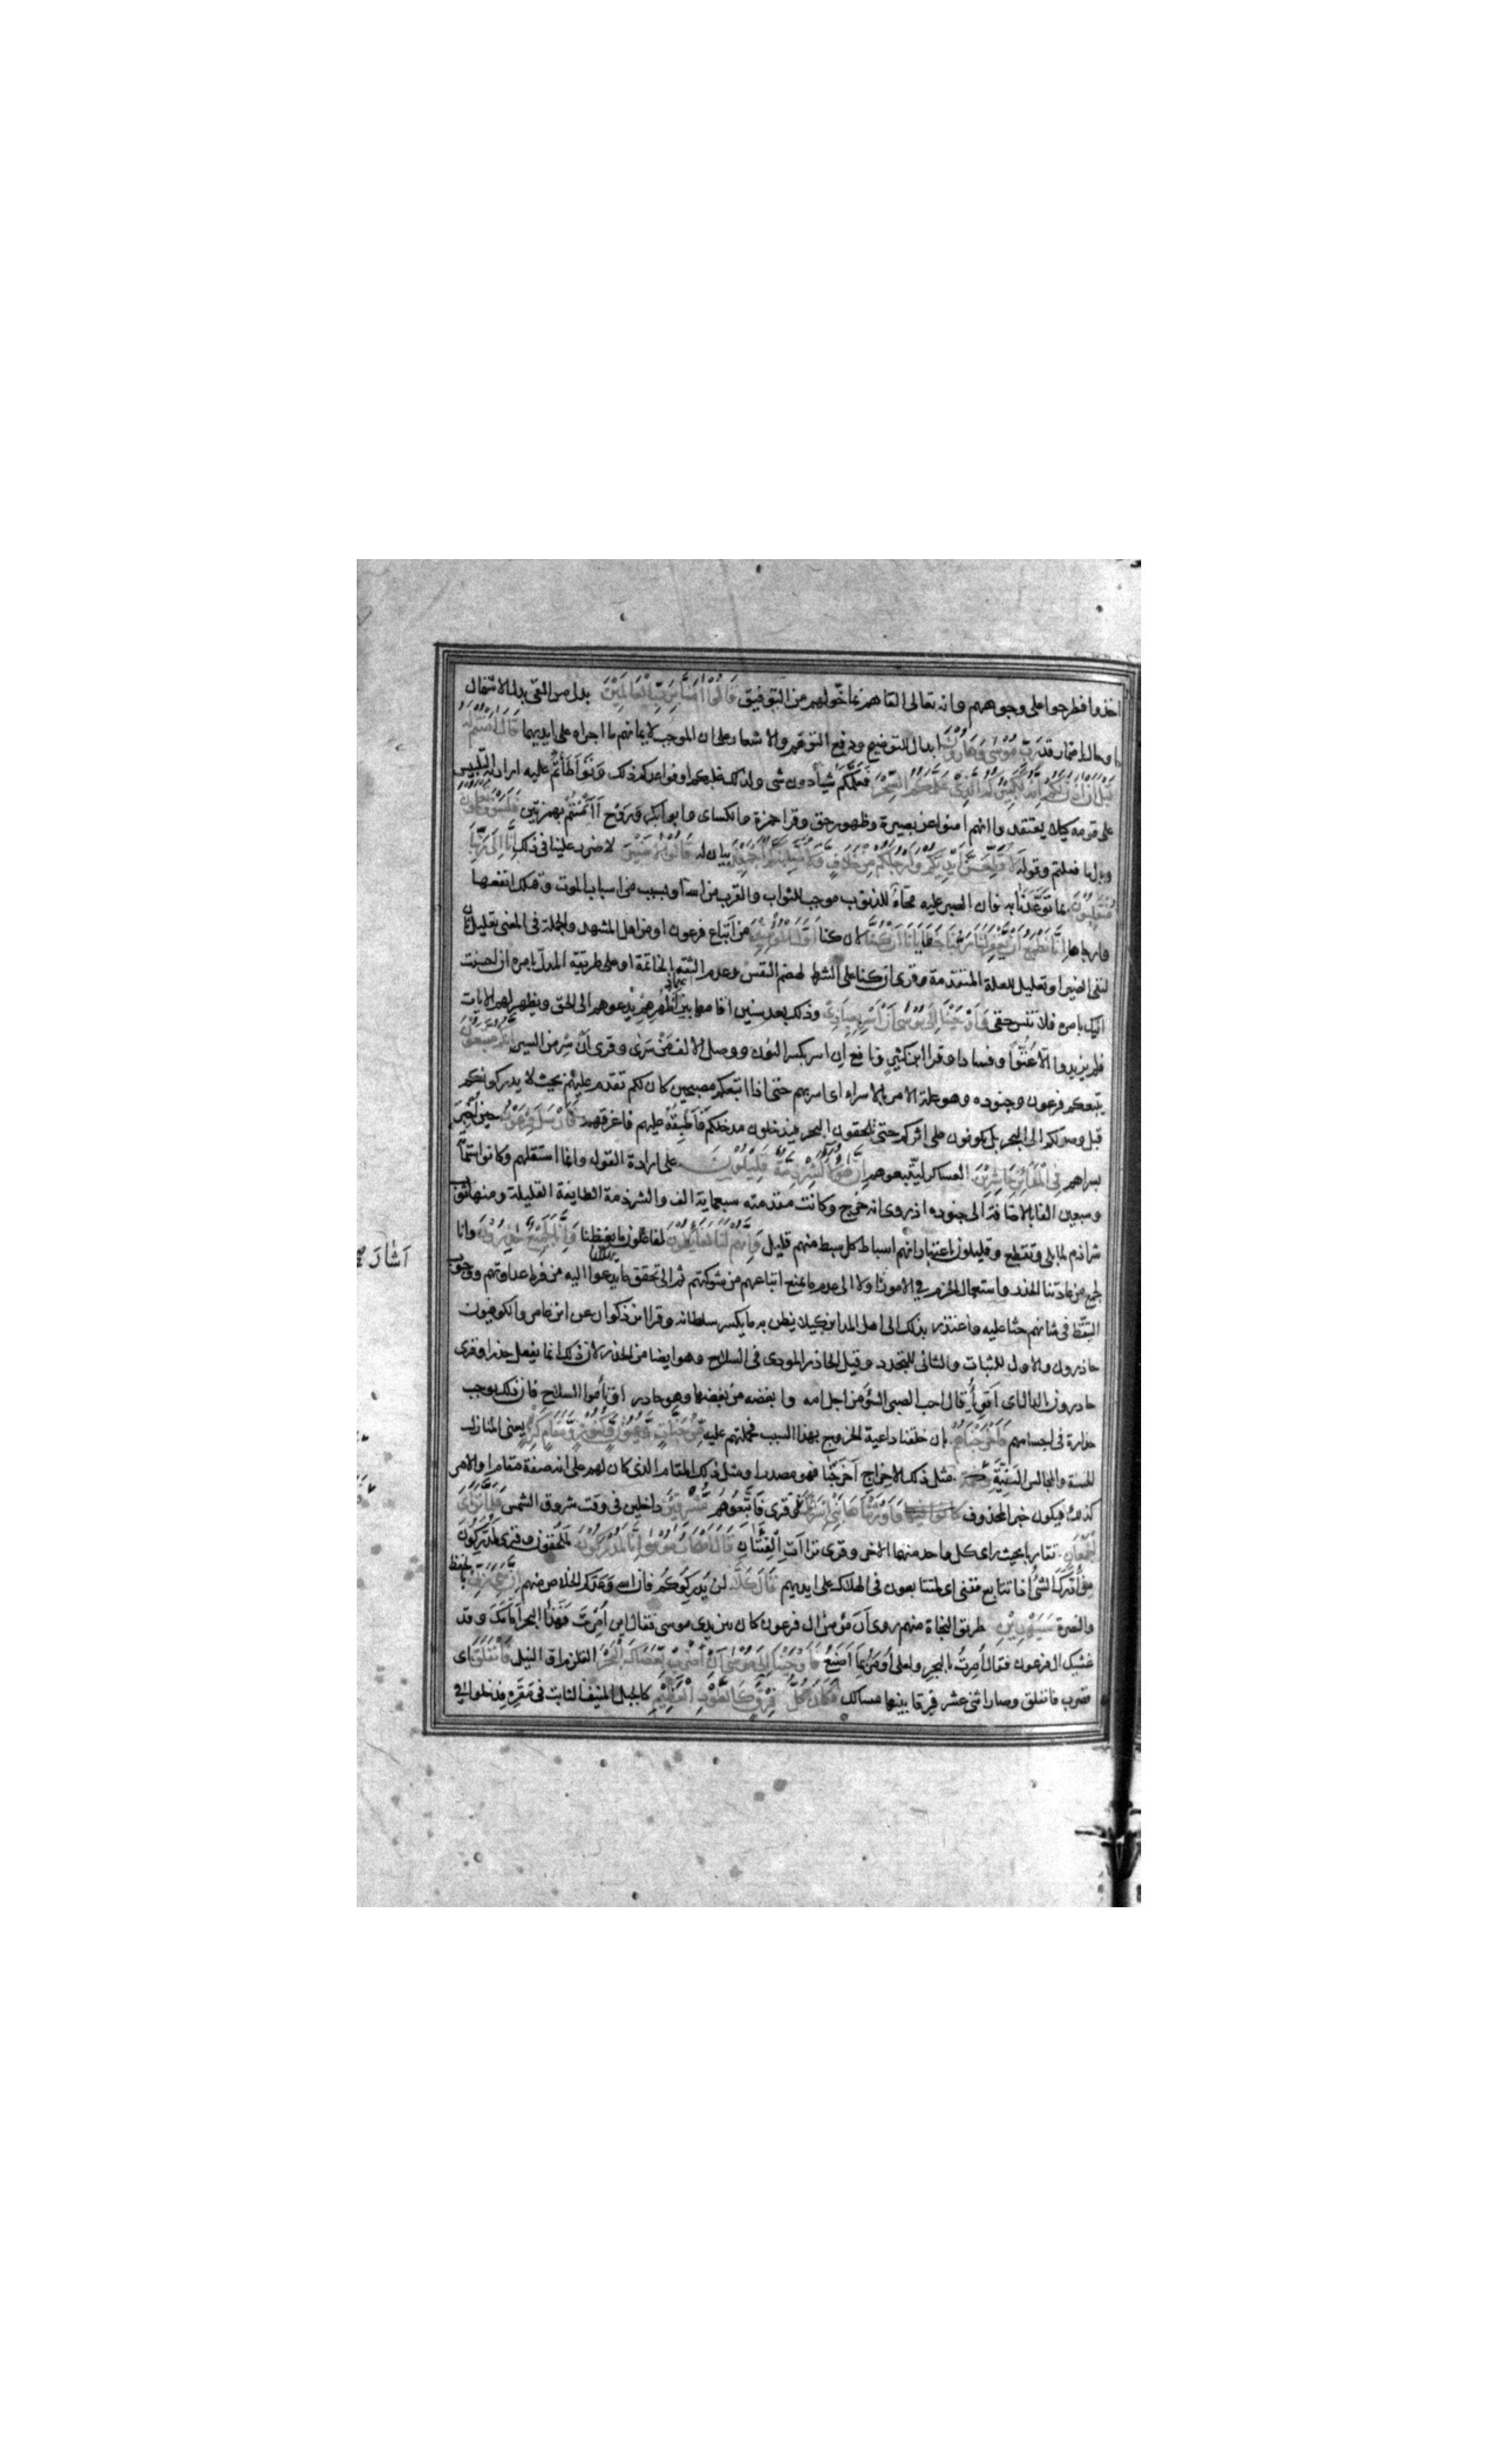 اخذوا فطرحوا على وجوههم وانه تعالى القاهم بما خولهم من التوفيق قَالُوْا اٰمَنَّا بِرَبِّ الْعَالَمِيْنَ بدل من القى بدل الاشتمال
او حال باضمار قد رَبِّ مُوْسٰى وَهَارُوْنَ ابدال للتوضيح ودفع التوهم والاشعار على ان الموجب لايمانهم ما اجراه على ايديهما قَالَ اٰمَنْتُمْ لَهُ
قَبْلَ اَنْ اٰذَنَ لَكُمْ اِنَّهُ لَكَبِيْرُكُمُ الَّذِىْ عَلَّمَكُمُ السِّحْرَ فَعَلَّمَكُمْ شيأ دون شى ولذلك غلبكم او فواعدكم ذلك وَتَوَاطَأْتُمْ عليه اراد التلبيس
على قومه كيلا يعتقدوا انهم امنوا عن بصيرة وظهور حق وقرا حمزة والكساى وابو بكر وَرَوْح أَاٰمَنْتُمْ بهمزتين فَلَسَوْفَ تَعْلَمُوْنَ
وبال ما فعلتم وقوله لَاُقَطِّعَنَّ اَيْدِيَكُمْ وَاَرْجُلَكُمْ مِنْ خِلَافٍ وَلَاُصَلِّبَنَّكُمْ اَجْمَعِيْنَ بيان له قَالُوْا لَا ضَيْرَ لا ضرر علينا فى ذلك اِنَّا اِلٰى رَبِّنَا
مُنْقَلِبُوْنَ بما تَوَعَّدَنَا به فان الصبر عليه محّاءٌ للذنوب موجب للثواب والقرب من الله او بسبب من اسباب الموت وقتلك انفعها
وارجاها اِنَّا نَطْمَعُ اَنْ يَّغْفِرَ لَنَا رَبُّنَا خَطَايَانَا اَنْ كُنَّا لان كنا اَوَّلَ الْمُؤْمِنِيْنَ من اَتباع فرعون او من اهل المشهد والجملة فى المعنى تعليل ثان
لنفى الضير او تعليل للعلة المتقدمة وقرى ان كنا على الشرط لهضم النفس وعدم الثقة بالخاتمة او على طريقة المدل بامره ان احسنت
اليك بامره فلا تنس حقى وَاَوْحَيْنَا اِلٰى مُوْسٰى اَنْ اَسْرِ بِعِبَادِىْ وذلك بعد سنين اقامها بين اَظْهُرِهِمْ يدعوهم الى الحق ويظهر لهم الايات
فلم يزيدوا الّا عُتُوًّا وفسادا وقرا ابن كثير ونافع اِن اسر بكسر النون ووصل الالف مِنْ سَرٰى وقرى اَنْ سِر من السير اِنَّكُمْ مُتَّبَعُوْنَ
يتبعكم فرعون وجنوده وهو علة الامر بالاسراء اى اسر بهم حتى اذا اتبعكم مصبحين كان لكم تقدم عليهم بحيث لا يدركونكم
قبل وصولكم الى البحر بل يكونون على اثركم حتى يلحقون البحر فيدخلون مدخلكم فَاُطبِقَهُ عليهم فاغرقهم فَاَرْسَلَ فِرْعَوْنُ حين اُخبِرَ
بسراهم فِى الْمَدَائِنِ حَاشِرِيْنَ العساكر ليتبعوهم اِنَّ هٰؤُلَاءِ لَشِرْذِمَةٌ قَلِيْلُوْنَ على ارادة القول وانما استقلهم وكانوا ستماة
وسبعين الفا بالاضافة الى جنوده اذ روى انه خرج وكانت مقدمته سبعماية الف والشرذمة الطايفة القليلة ومنها ثوب
شراذم لما بلى وتقطع وقليلون باعتبار انهم اسباط كل سبط منهم قليل وَاِنَّهُمْ لَنَا لَغَائِظُوْنَ لفاعلون ما يغيظنا وَاِنَّا لَجَمِيْعٌ حٰذِرُوْنَ وانا
لجمع من عادتنا الحذر واستعمال الحزم فى الامور اشار اولا الى عدم ما يمنع اتباعهم من شوكتهم ثم الى تحقق ما يدعوا اليه من فرط عداوتهم ووجوب
التيقّظ فى شانهم حثا عليه واعتذر بذلك الى اهل المداين كيلا يظن به ما يكسر سلطانه وقرا ابن ذكوان عن ابن عامر والكوفيون
حاذرون والاول للثبات والثانى للتجدد وقيل الحاذر المودى فى السلاح وهو ايضا من الحذر لان ذلك انما يفعل حذرا وقرى
حادرون بالدال اى اَقوياء قال احب الصبى السوء من اجل امه وابغضه من بغضها وهو حادر او تامّوا السلاح فان ذلك يوجب
حدارة فى اجسامهم فَاَخْرَجْنَاهُمْ بان خلقنا داعية الخروج بهذا السبب فحملتهم عليه مِنْ جَنَّاتٍ وَّعُيُوْنٍ وَّكُنُوْزٍ وَّمَقَامٍ كَرِيْمٍ يعنى المنازل
الحسنة والمجالس البَهِيَّة كَذٰلِكَ مثل ذلك الاخراج اَخْرَجْنَا فهو مصدر او مثل ذلك المقام الذى كان لهم على انه صفة مقام او الامر
كذلك فيكون خبر المحذوف وَاَوْرَثْنَاهَا بَنِىْ اِسْرَائِيْلَ وقرى فَاتَّبَعُوْهُمْ مُّشْرِقِيْنَ داخلين فى وقت شروق الشمس فَلَمَّا تَرَاءَى
الْجَمْعَانِ تقاربا بحيث راى كل واحد منهما الاخر وقرى تراءَتِ الْفِئَتَانِ قَالَ اَصْحَابُ مُوْسٰى اِنَّا لَمُدْرَكُوْنَ لملحقون وقرى لَمُدَّرِكُوْنَ
من اَدَّرَكَ الشئ اذا تتابع ففنى اى لمتتابعون فى الهلاك على ايديهم قَالَ كَلَّا لن يُدركوكم فان الله وَعَدَكم الخلاص منهم اِنَّ مَعِىَ رَبِّىْ بالحفظ
والنصرة سَيَهْدِيْنِ طريق النجاة منهم روى اَنّ مؤمن ال فرعون كان بين يدى موسى فقال اين اُمِرْتَ فَهٰذا البحر اَمَامَكَ وقد
غشيك ال فرعون فقال اُمِرتُ بالبحر ولعلى اُومَرُ بما اَصنعُ فَاَوْحَيْنَا اِلٰى مُوْسٰى اَنِ اضْرِبْ بِّعَصَاكَ الْبَحْرَ القلزم او النيل فَانْفَلَقَ اى
فضرب فانفلق وصار اثنى عشر فِرقا بينها مسالك فَكَانَ كُلُّ فِرْقٍ كَالطَّوْدِ الْعَظِيْمِ كالجبل المنيف الثابت فى مَقَرِّه فدخلوا فى
اَشَارَ